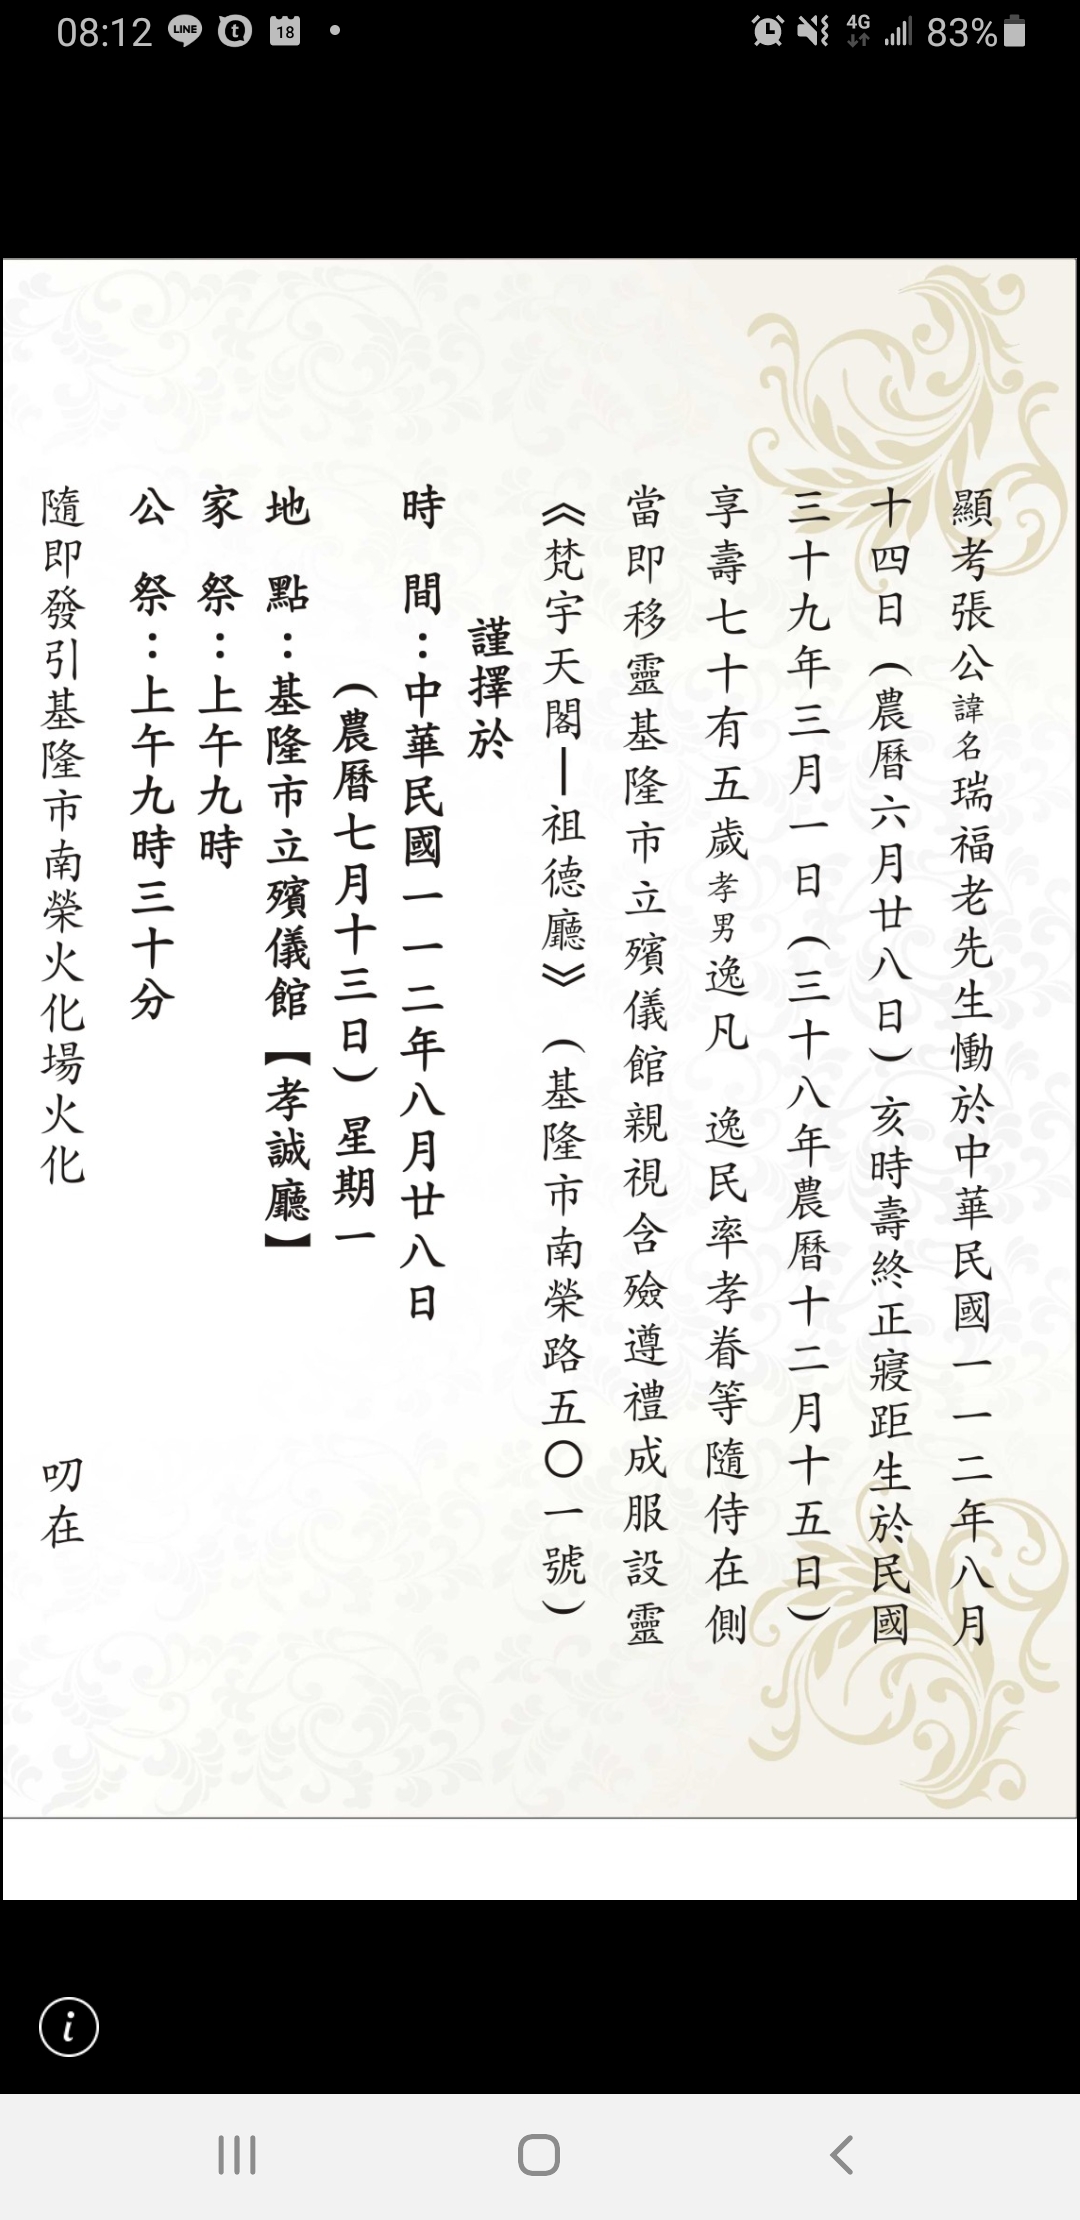 08:12
LINE
t
18
4G
83%
顯考張公諱名瑞福老先生慟於中華民國一一二年八月
十四日（農曆六月廿八日）亥時壽終正寢距生於民國
三十九年三月一日（三十八年農曆十二月十五日）
享壽七十有五歲孝男逸凡　逸民率孝眷等隨侍在側
當即移靈基隆市立殯儀館親視含殮遵禮成服設靈
《梵宇天閣—祖德廳》（基隆市南榮路五〇一號）
謹擇於
時　間：中華民國一一二年八月廿八日
（農曆七月十三日）星期一
地　點：基隆市立殯儀館【孝誠廳】
家　祭：上午九時
公　祭：上午九時三十分
隨即發引基隆市南榮火化場火化　叨在
i